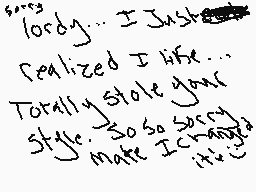 sorry
lordy... I Just
realized I like...
Totally stole your
style. So So sorry
make I changed
it :)